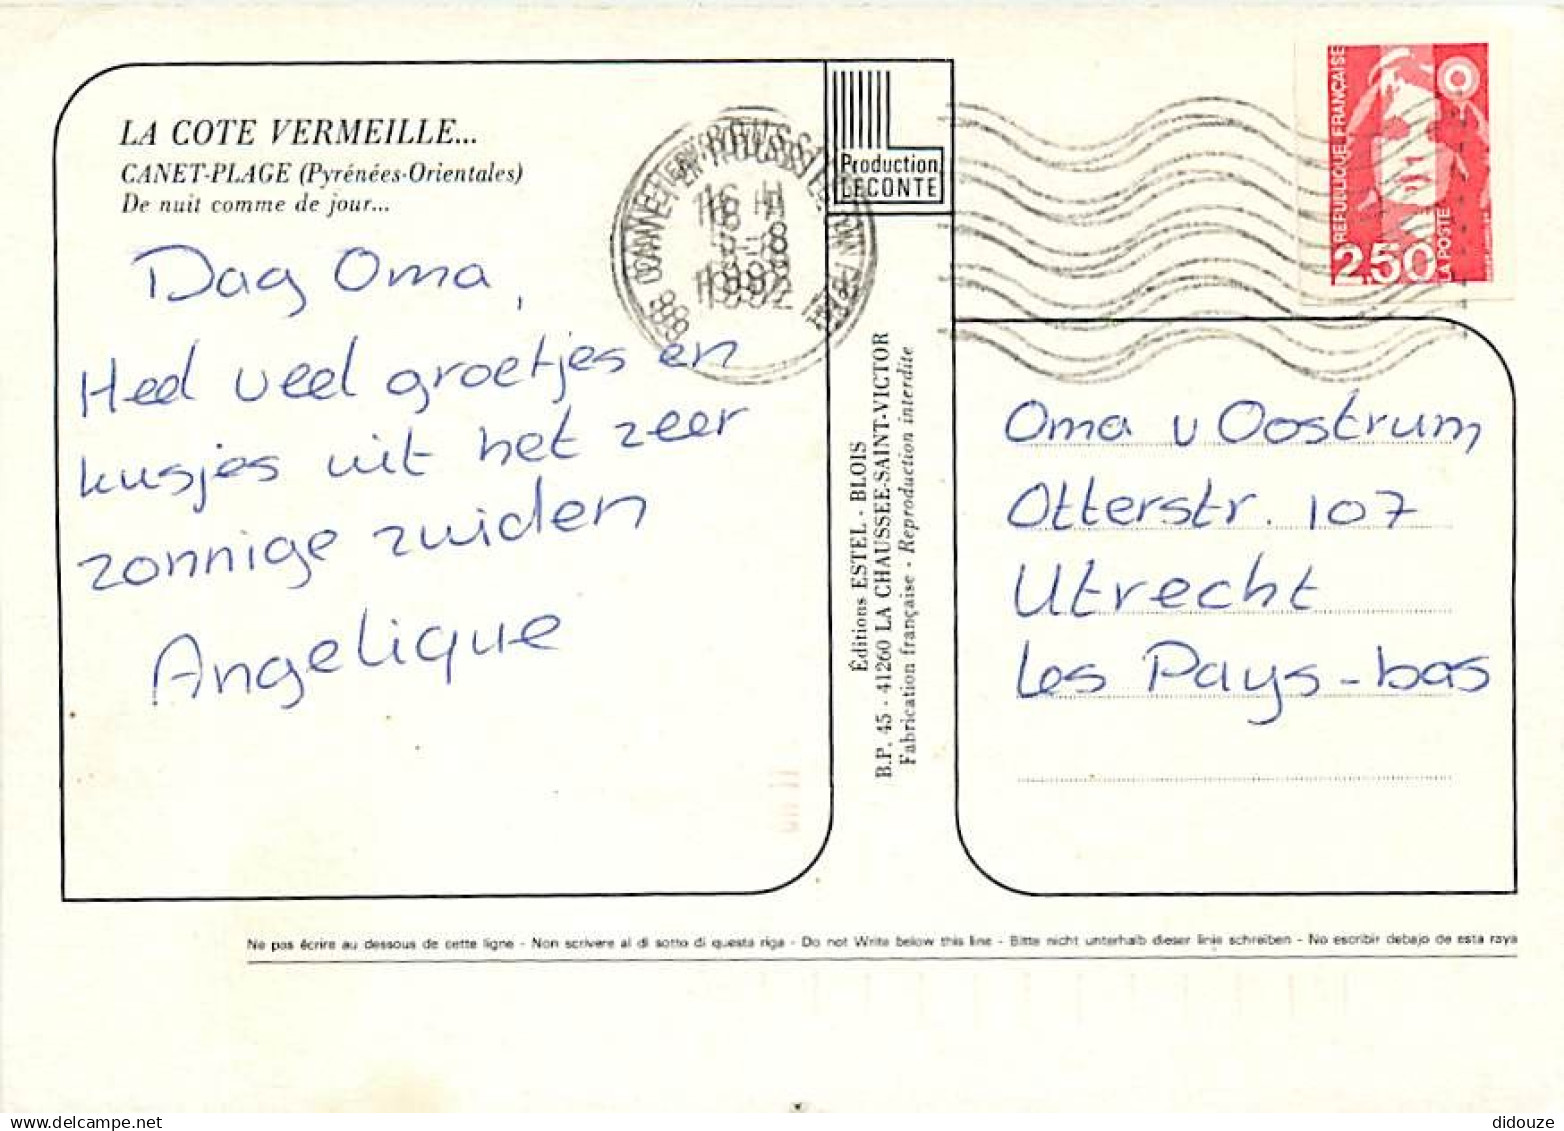 LA COTE VERMEILLE...
CANET-PLAGE (Pyrénées-Orientales)
De nuit comme de jour...
Dag Oma,
Heel veel groetjes en
kusjes uit het zeer
zonnige zuiden
Angelique
16 H
8
1992
Production
LECONTE
Éditions ESTEL - BLOIS
B.P. 45 - 41260 LA CHAUSSEE-SAINT-VICTOR
Fabrication française - Reproduction interdite
REPUBLIQUE FRANÇAISE
2,50
LA POSTE
Oma v Oostrum
Otterstr. 107
Utrecht
Les Pays-bas
Ne pas écrire au dessous de cette ligne - Non scrivere al di sotto di questa riga - Do not Write below this line - Bitte nicht unterhalb dieser linie schreiben - No escribir debajo de esta raya
didouze